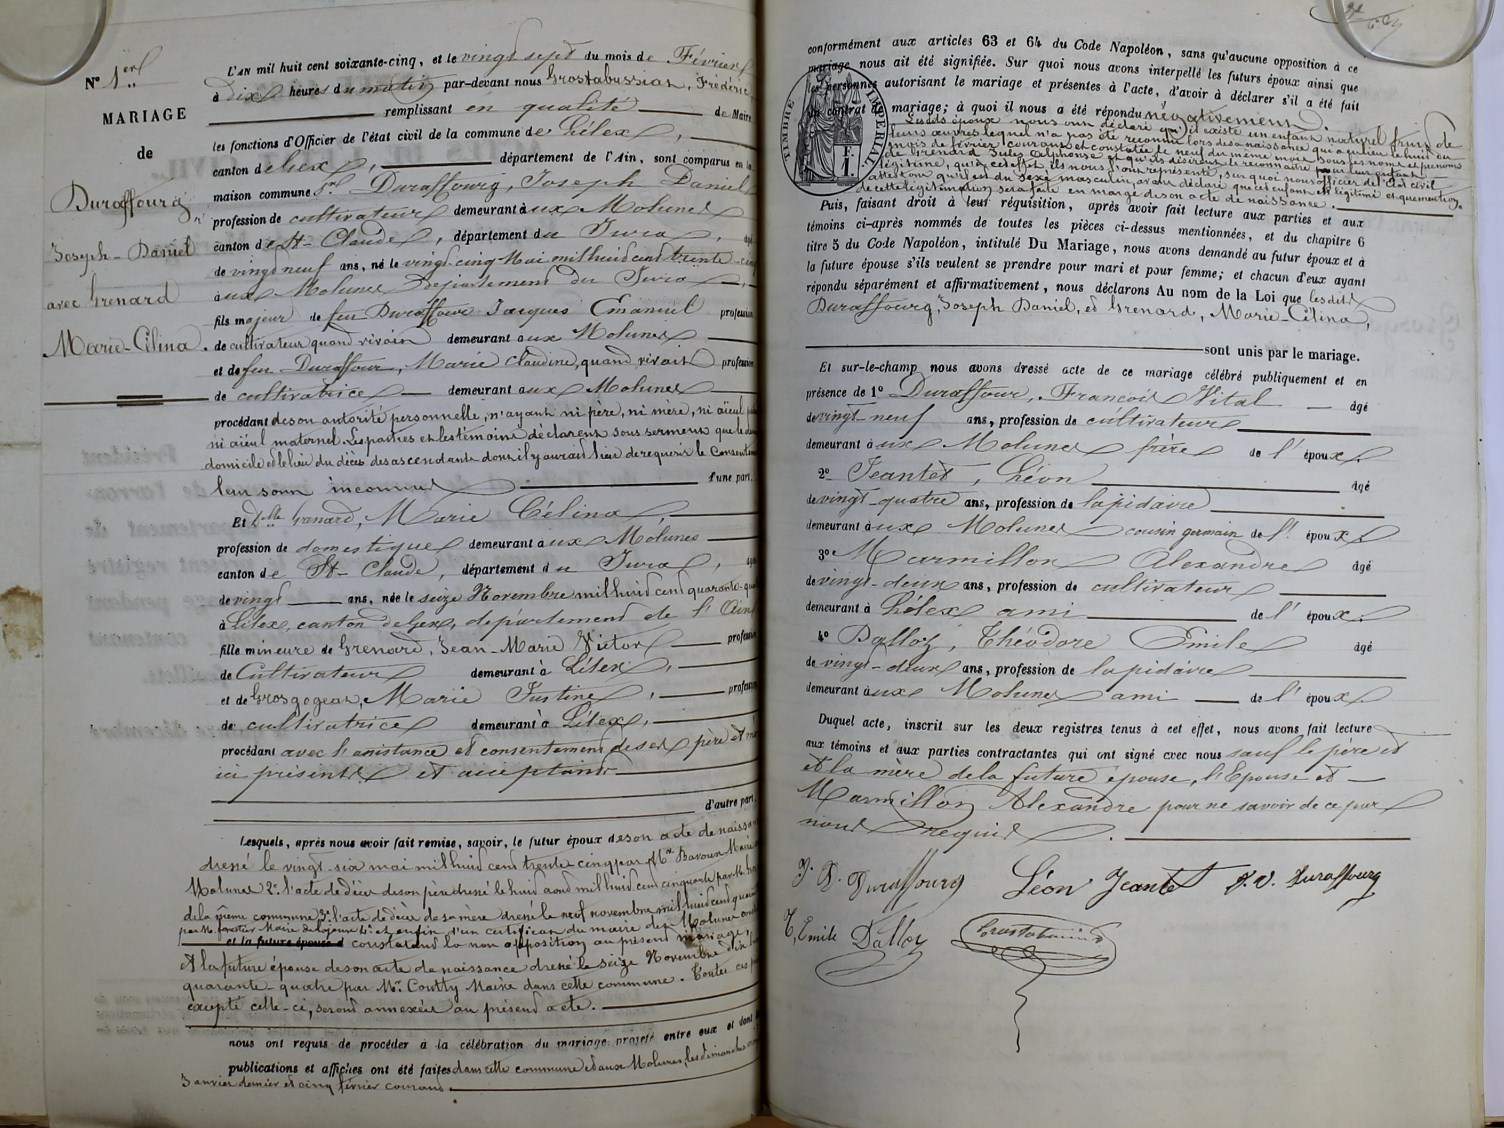 N° 1er
MARIAGE
de
Duraffourg
Joseph-Daniel
avec Grenard
Marie-Célina.
L'AN mil huit cent soixante-cinq, et le vingt sept du mois de Février
à dix heures du matin par-devant nous Grostabussiat, Frédéric
remplissant en qualité de Maire
les fonctions d'Officier de l'état civil de la commune de Lélex,
canton de Gex, département de l'Ain, sont comparus en la
maison commune Duraffourg, Joseph Daniel
profession de cultivateur demeurant aux Molunes
canton de St-Claude, département du Jura, âgé
de vingt neuf ans, né le vingt-cinq Mai mil huit cent trente-cinq
aux Molunes Département du Jura
fils majeur de feu Duraffour Jacques Emanuel profession
de cultivateur quand vivait demeurant aux Molunes
et de feu Duraffour, Marie Claudine, quand vivait profession
de cultivatrice demeurant aux Molunes
procédant de son autorité personnelle, n'ayant ni père, ni mère, ni aïeul
ni aïeul maternel. Les parties et les témoins déclarent sous serment que le
domicile et le lieu du décès des ascendants dont il y aurait lieu de requérir le Consentement
leur sont inconnus d'une part.
Et Dlle Grenard, Marie Célina
profession de domestique demeurant aux Molunes
canton de St-Claude, département du Jura, âgée
de vingt ans, née le seize Novembre mil huit cent quarante-quatre
à Lélex, canton de Gex, département de l'Ain
fille mineure de Grenard, Jean-Marie Victor profession
de Cultivateur demeurant à Lélex,
et de Grosgogeat, Marie Justine, profession
de cultivatrice demeurant à Lélex,
procédant avec l'assistance et consentement de ses père et mère
ici présents et acceptant
d'autre part.
Lesquels, après nous avoir fait remise, savoir, le futur époux de son acte de naissance
dressé le vingt-six mai mil huit cent trente cinq par Mr
Molunes 2° l'acte de décès de son père dressé le huit août mil huit cent cinquante par
de la même commune 3° l'acte de décès de sa mère dressé le neuf novembre mil huit cent
par Mr Maire de 4° et enfin d'un certificat du maire des Molunes
et la future épouse d constatant la non opposition au présent mariage,
Et la future épouse de son acte de naissance dressé le seize Novembre
quarante-quatre par Mr Coutty Maire dans cette commune. Toutes ces
excepté celle-ci, seront annexées au présent acte.
nous ont requis de procéder à la célébration du mariage projeté entre eux et dont
publications et affiches ont été faites dans cette commune et aux Molunes, les dimanches
Janvier dernier et cinq février courant.
conformément aux articles 63 et 64 du Code Napoléon, sans qu'aucune opposition à ce
mariage nous ait été signifiée. Sur quoi nous avons interpellé les futurs époux ainsi que
les personnes autorisant le mariage et présentes à l'acte, d'avoir à déclarer s'il a été fait
un contrat de mariage; à quoi il nous a été répondu négativement.
Lesdits époux nous ont déclaré qu'il existe un enfant naturel fruit de
leurs œuvres lequel n'a pas été reconnu lors de sa naissance qui a eu lieu le huit du
mois de février courant et constatée le neuf du même mois sous les nom et prénoms
de Grenard Jules Alphonse et qu'ils désirent le reconnaître pour leur enfant
légitime, qu'à cet effet ils nous l'ont représenté, sur quoi nous officier de l'Etat civil
attestons qu'il est du sexe masculin, avons déclaré que cet enfant est légitimé et que mention
de cette légitimation sera faite en marge de son acte de naissance.
TIMBRE IMPÉRIAL
1 F.
Puis, faisant droit à leur réquisition, après avoir fait lecture aux parties et aux
témoins ci-après nommés de toutes les pièces ci-dessus mentionnées, et du chapitre 6
titre 5 du Code Napoléon, intitulé Du Mariage, nous avons demandé au futur époux et à
la future épouse s'ils veulent se prendre pour mari et pour femme; et chacun d'eux ayant
répondu séparément et affirmativement, nous déclarons Au nom de la Loi que lesdits
Duraffourg, Joseph Daniel, et Grenard, Marie-Célina,
sont unis par le mariage.
Et sur-le-champ nous avons dressé acte de ce mariage célébré publiquement et en
présence de 1° Duraffour, François Vital âgé
de vingt-neuf ans, profession de cultivateur
demeurant aux Molunes frère de l'époux.
2° Jeantet, Léon âgé
de vingt-quatre ans, profession de lapidaire
demeurant aux Molunes cousin germain de l'époux.
3° Marmillon Alexandre âgé
de vingt-deux ans, profession de cultivateur
demeurant à Lélex ami de l'époux.
4° Dalloz, Théodore Emile âgé
de vingt-deux ans, profession de lapidaire
demeurant aux Molunes ami de l'époux.
Duquel acte, inscrit sur les deux registres tenus à cet effet, nous avons fait lecture
aux témoins et aux parties contractantes qui ont signé avec nous sauf le père et
et la mère de la future épouse, l'Epouse et
Marmillon Alexandre pour ne savoir de ce par
nous requis.
J. D. Duraffourg Léon Jeantet F. V. Duraffourg
T, Emile Dalloz Grostabussiat